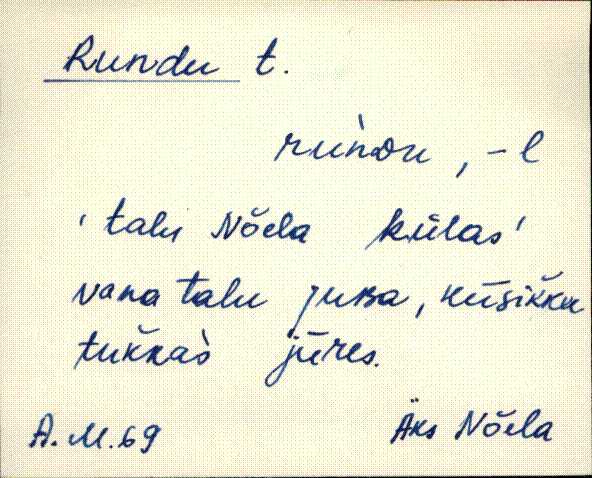 Rundu t.
rùndu, -l
' talu Nõela külas'
vana talu juba, kūsikku
tukkàs jūres.
A. M. 69
Äks Nõela